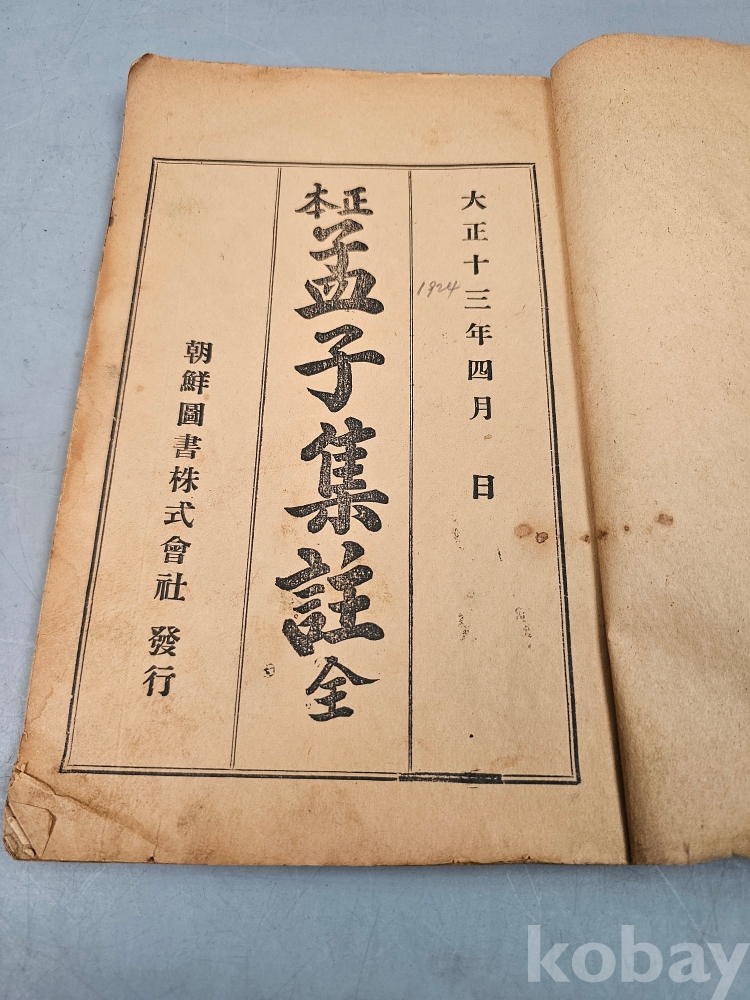 大正十三年四月 日
1924
正本
孟子集註全
朝鮮圖書株式會社 發行
kobay